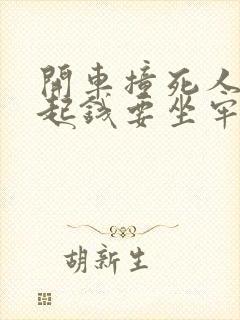 開車撞死人
起錢要坐牢
胡新生